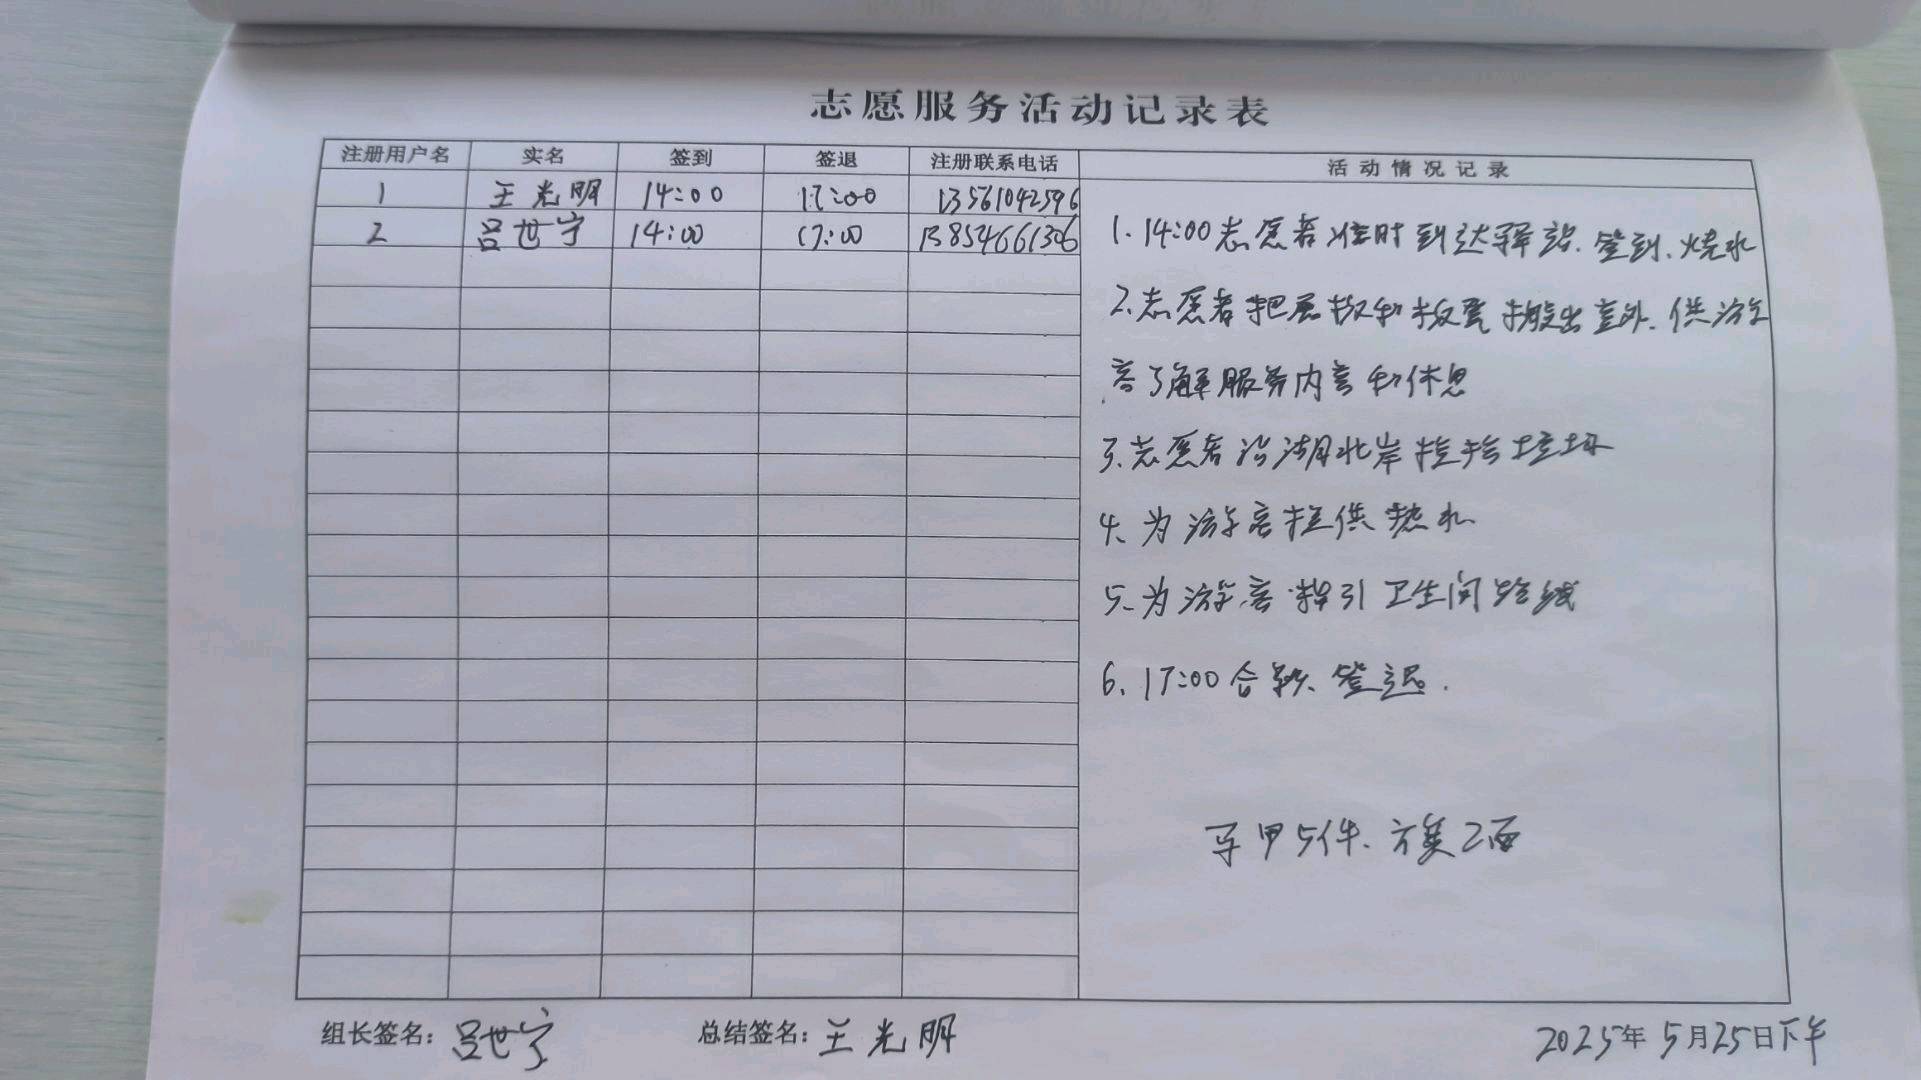 志愿服务活动记录表
注册用户名 实名 签到 签退 注册联系电话 活动情况记录
1 王光明 14:00 17:00 13561042596
2 吕世宁 14:00 17:00 13854661306
1.14:00志愿者准时到达驿站、签到、烧水
2.志愿者把展板和板凳搬出室外、供游
客了解服务内容和休息
3、志愿者沿湖北岸捡拾垃圾
4、为游客提供热水
5、为游客指引卫生间路线
6、17:00合影、签退.
马甲5件、方旗2面
组长签名：吕世宁 总结签名：王光明 2025年5月25日下午